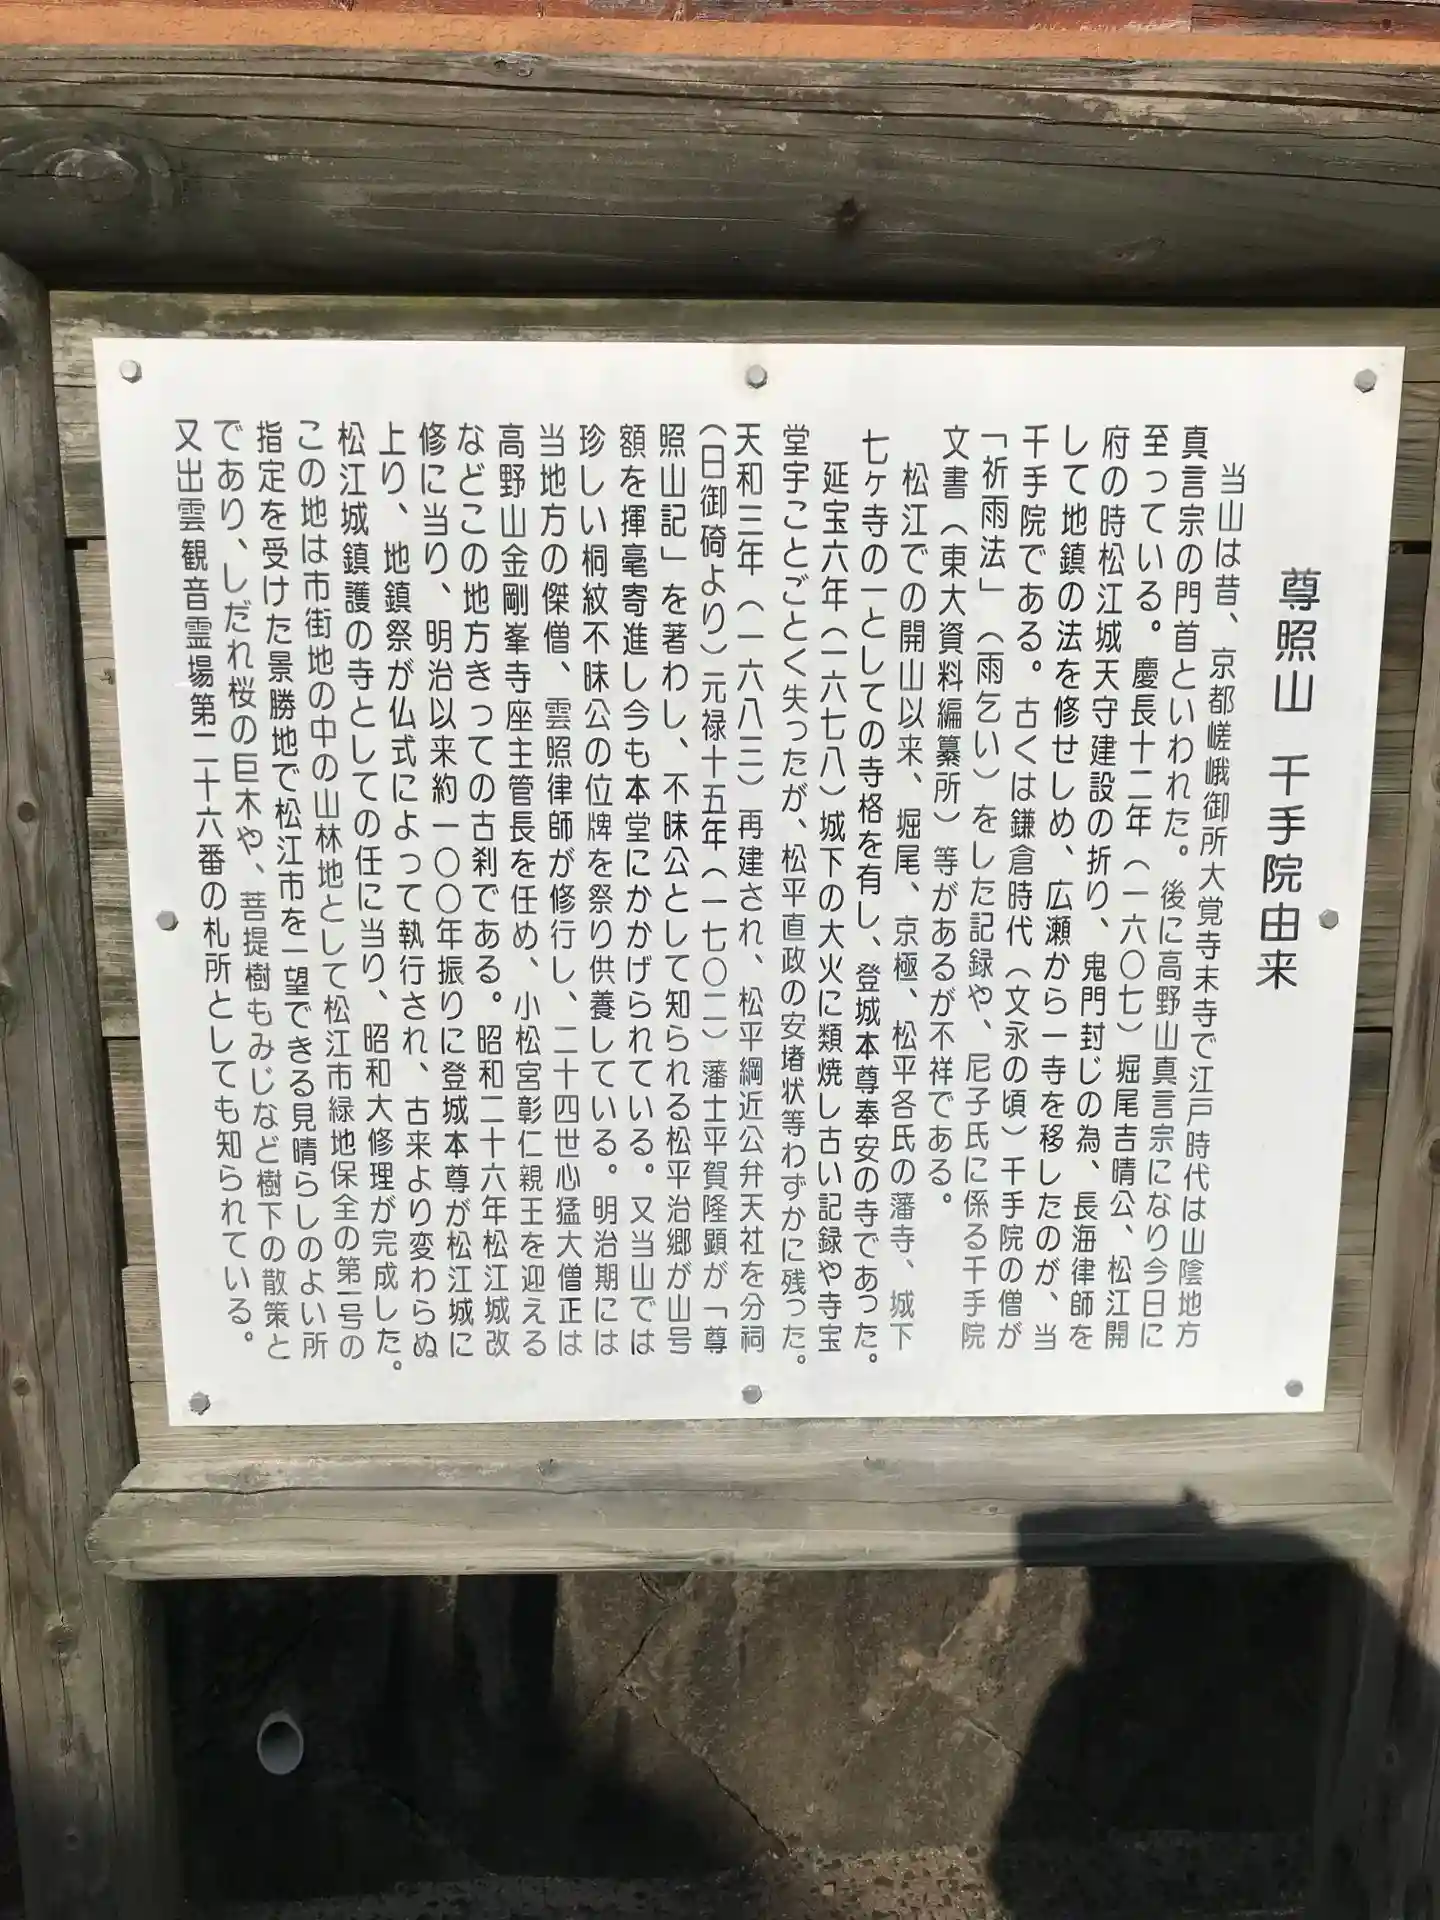 尊照山 千手院由来
当山は昔、京都嵯峨御所大覚寺末寺で江戸時代は山陰地方
真言宗の門首といわれた。後に高野山真言宗になり今日に
至っている。慶長十二年（一六〇七）堀尾吉晴公、松江開
府の時松江城天守建設の折り、鬼門封じの為、長海律師を
して地鎮の法を修せしめ、広瀬から一寺を移したのが、当
千手院である。古くは鎌倉時代（文永の頃）千手院の僧が
「祈雨法」（雨乞い）をした記録や、尼子氏に係る千手院
文書（東大資料編纂所）等があるが不祥である。
松江での開山以来、堀尾、京極、松平各氏の藩寺、城下
七ヶ寺の一としての寺格を有し、登城本尊奉安の寺であった。
延宝六年（一六七八）城下の大火に類焼し古い記録や寺宝
堂宇ことごとく失ったが、松平直政の安堵状等わずかに残った。
天和三年（一六八三）再建され、松平綱近公弁天社を分祠
（日御碕より）元禄十五年（一七〇二）藩士平賀隆顕が「尊
照山記」を著わし、不昧公として知られる松平治郷が山号
額を揮毫寄進し今も本堂にかかげられている。又当山では
珍しい桐紋不昧公の位牌を祭り供養している。明治期には
当地方の傑僧、雲照律師が修行し、二十四世心猛大僧正は
高野山金剛峯寺座主管長を任め、小松宮彰仁親王を迎える
などこの地方きっての古刹である。昭和二十六年松江城改
修に当り、明治以来約一〇〇年振りに登城本尊が松江城に
上り、地鎮祭が仏式によって執行され、古来より変わらぬ
松江城鎮護の寺としての任に当り、昭和大修理が完成した。
この地は市街地の中の山林地として松江市緑地保全の第一号の
指定を受けた景勝地で松江市を一望できる見晴らしのよい所
であり、しだれ桜の巨木や、菩提樹もみじなど樹下の散策と
又出雲観音霊場第二十六番の札所としても知られている。